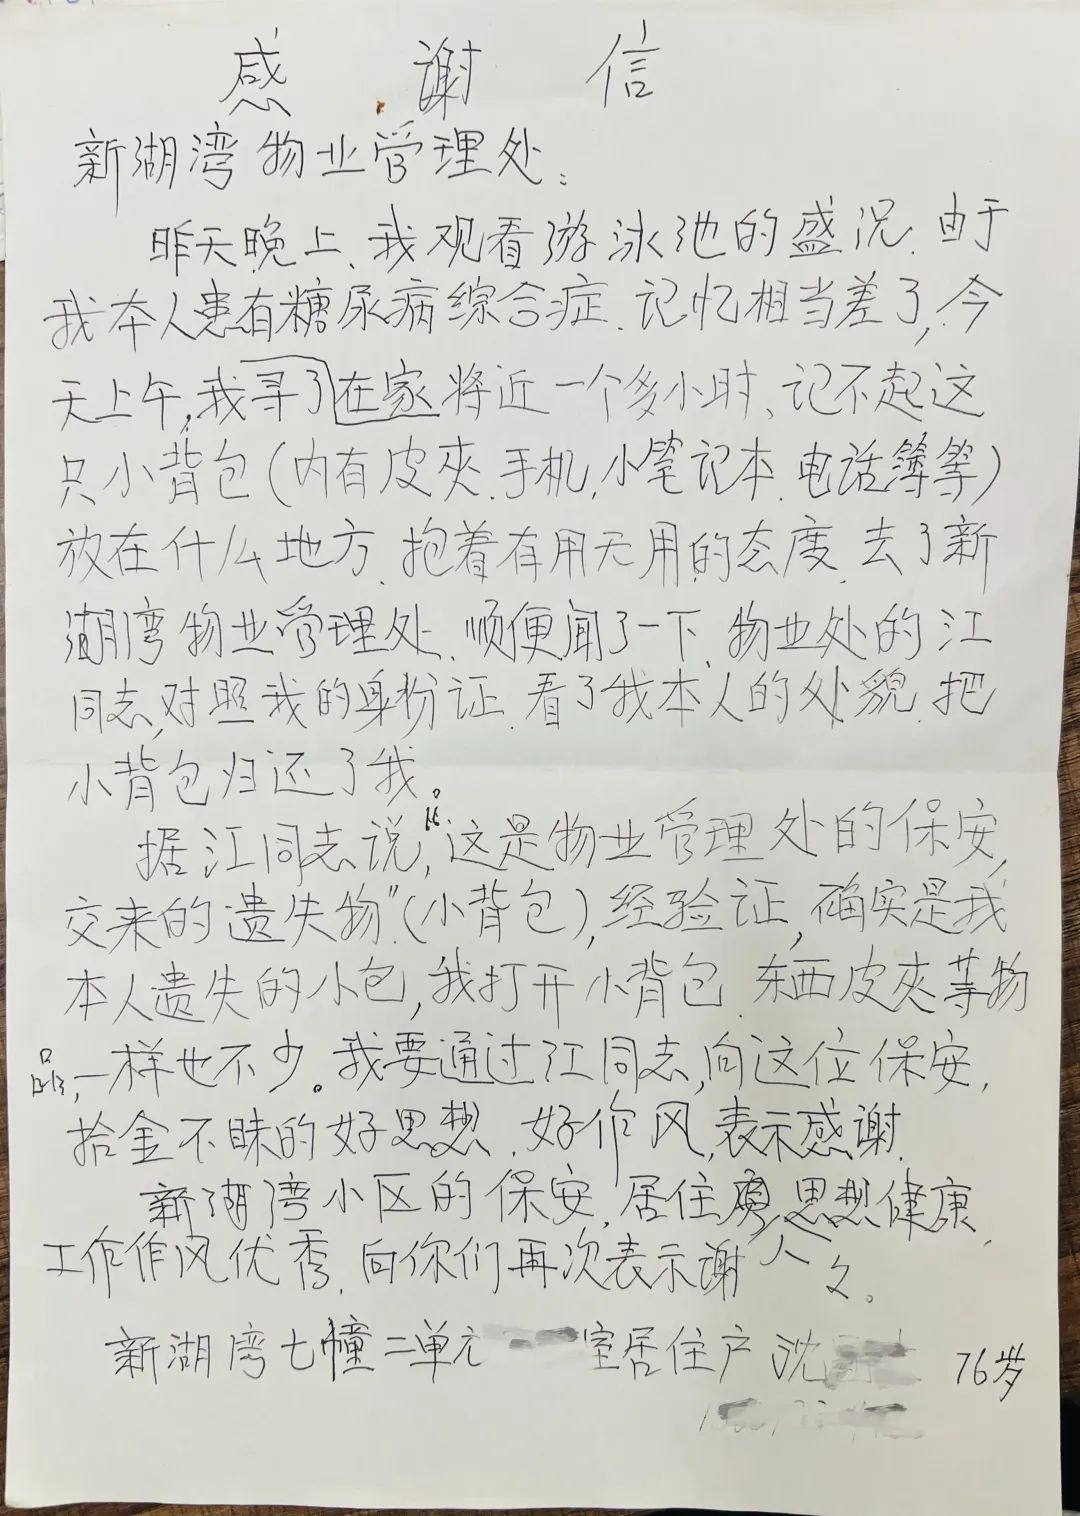 感谢信
新湖湾物业管理处:
昨天晚上、我观看游泳池的盛况.由于
我本人患有糖尿病综合症.记忆相当差了,今
天上午,我寻了在家将近一个多小时、记不起这
只小背包(内有皮夾.手机,小笔记本.电话簿等)
放在什么地方.抱着有用无用的态度.去了新
湖湾物业管理处、顺便闻了一下、物业处的江
同志,对照我的身份证.看了我本人的处貌.把
小背包归还了我。
据江同志说,“这是物业管理处的保安,
交来的遗失物”(小背包),经验证,确实是我
本人遗失的小包,我打开小背包.东西皮夾等物
品,一样也不少。我要通过江同志,向这位保安,
拾金不昧的好思想.好作风,表示感谢.
新湖湾小区的保安,居住人思想健康.
工作作风优秀.向你们再次表示谢々。
新湖湾七幢二单元 室居住户 沈 76岁